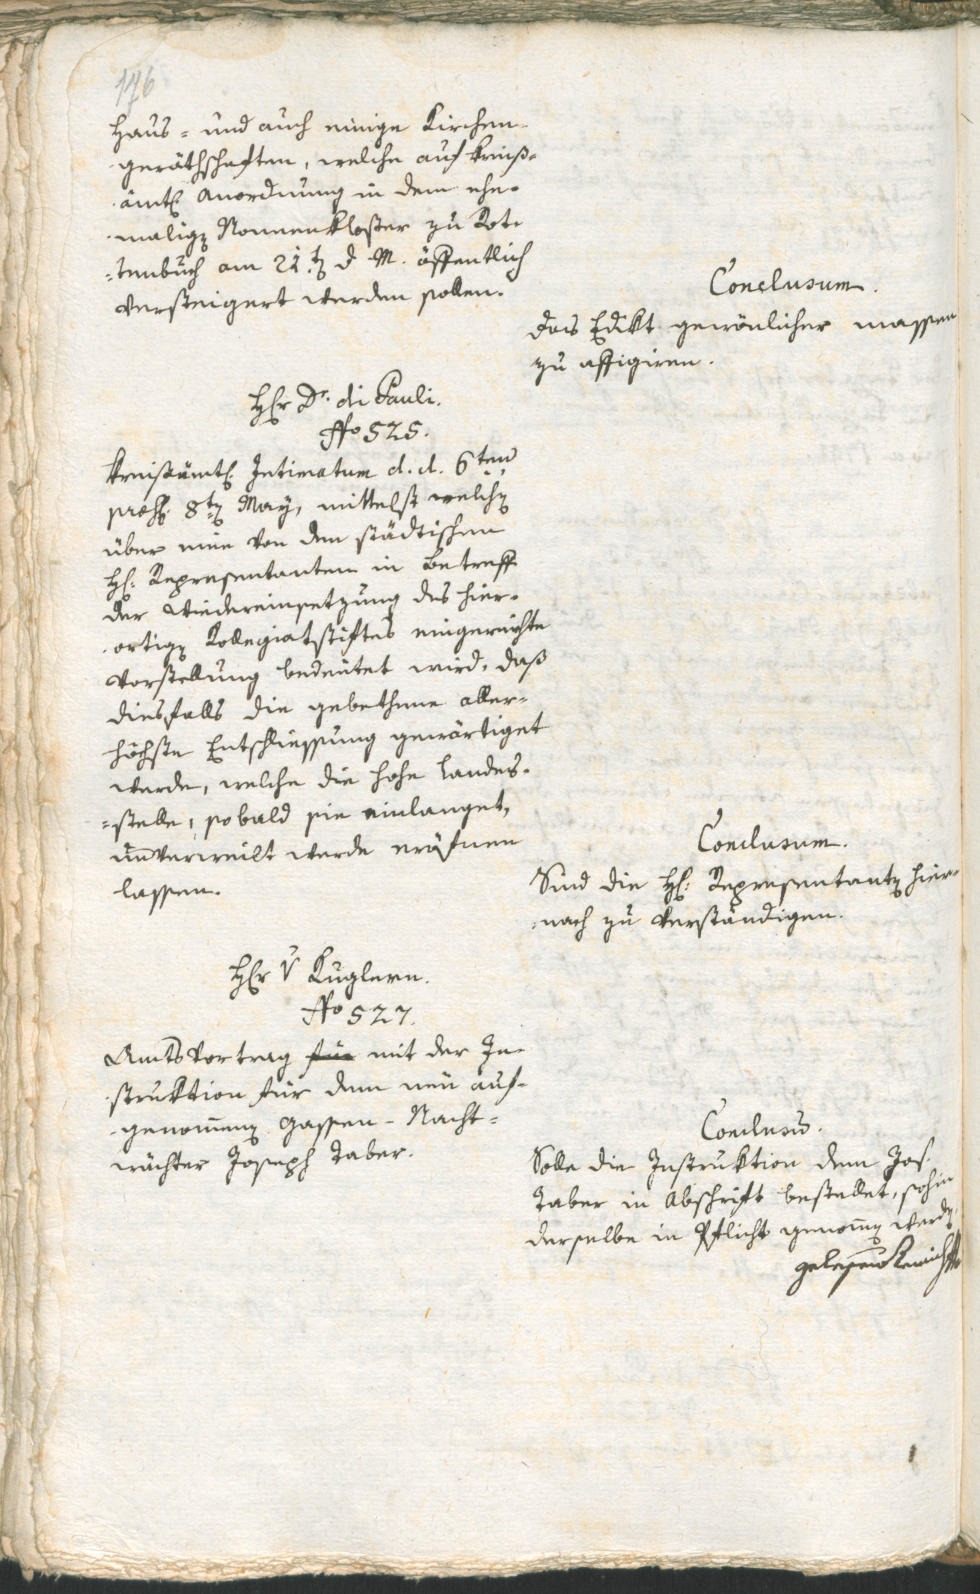 176
Haus- und auch einige Kirchen-
geräthschaften, welche auf kreiß-
ämtl. Anordnung in dem ehe-
maligen Nonnenkloster zu Rot-
=tenbuch am 21ten d. M. öffentlich
versteigert werden sollen.
Conclusum.
Das Edikt gewönlicher massen
zu affigiren.
Hr Dr. di Pauli.
No 525.
Kreißämtl. Intimatum d. d. 6ten
præs. 8ten May, mittelst welchen
über eine von den städtischen
H. Representanten in Betreff
der Wiedereinsetzung des hier-
ortigen Kollegiatstiftes eingereichte
Vorstellung bedeutet wird, daß
diesfalls die gebethene aller-
höchste Entschliessung gewärtiget
werde, welche die hohe Landes-
=stelle, sobald sie einlanget,
unverweilt werde eröfnen
lassen.
Conclusum.
Sind die H. Representanten hier-
nach zu verständigen.
Hr v Kuglern.
No 527.
Amtsvortrag für mit der In-
struktion für den neu auf-
genommenen Gassen-Nacht-
wächter Joseph Taber.
Conclusum.
Solle die Instruktion dem Jos.
Taber in Abschrift bestellet, sohin
derselbe in Pflicht genommen werden.
gelesen